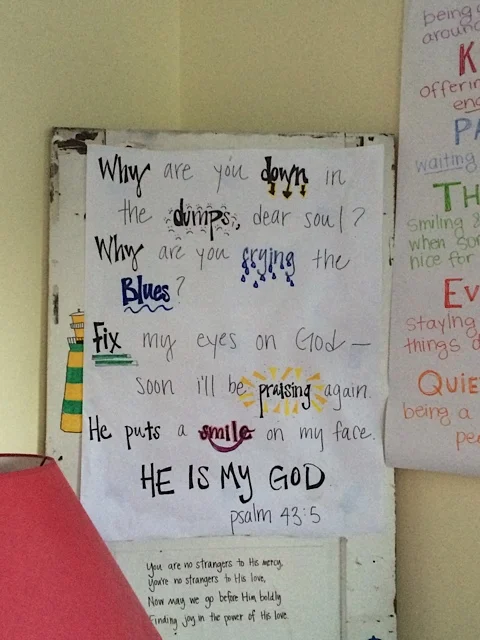 Why are you down in
the dumps, dear soul?
Why are you crying the
Blues?
Fix my eyes on God —
soon i'll be praising again.
He puts a smile on my face.
HE IS MY GOD
psalm 43:5
You are no strangers to His mercy,
You're no strangers to His love,
Now may we go before Him boldly
Finding joy in the power of His love
being
around
K
offerin
en
PA
waiting
TH
smiling &
when som
nice for
Ev
staying
things d
QUIE
being a
pea